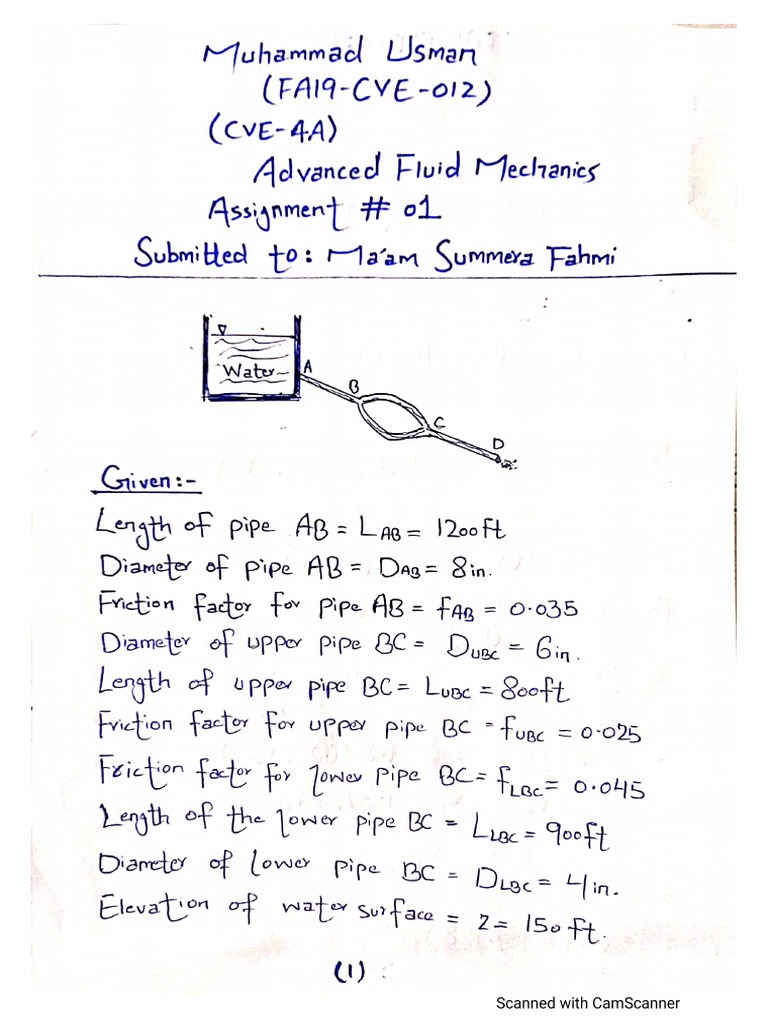 Muhammad Usman
(FA19-CVE-012)
(CVE-4A)
Advanced Fluid Mechanics
Assignment # 01
Submitted to: Ma'am Summera Fahmi
Water
A
B
C
D
Given:-
Length of pipe AB = LAB = 1200ft
Diameter of pipe AB = DAB = 8in.
Friction factor for pipe AB = fAB = 0.035
Diameter of upper pipe BC = DUBC = 6in.
Length of upper pipe BC = LUBC = 800ft
Friction factor for upper pipe BC = fUBC = 0.025
Friction factor for lower pipe BC = fLBC = 0.045
Length of the lower pipe BC = LLBC = 900ft
Diameter of lower pipe BC = DLBC = 4in.
Elevation of water surface = Z = 150ft.
(1)
Scanned with CamScanner